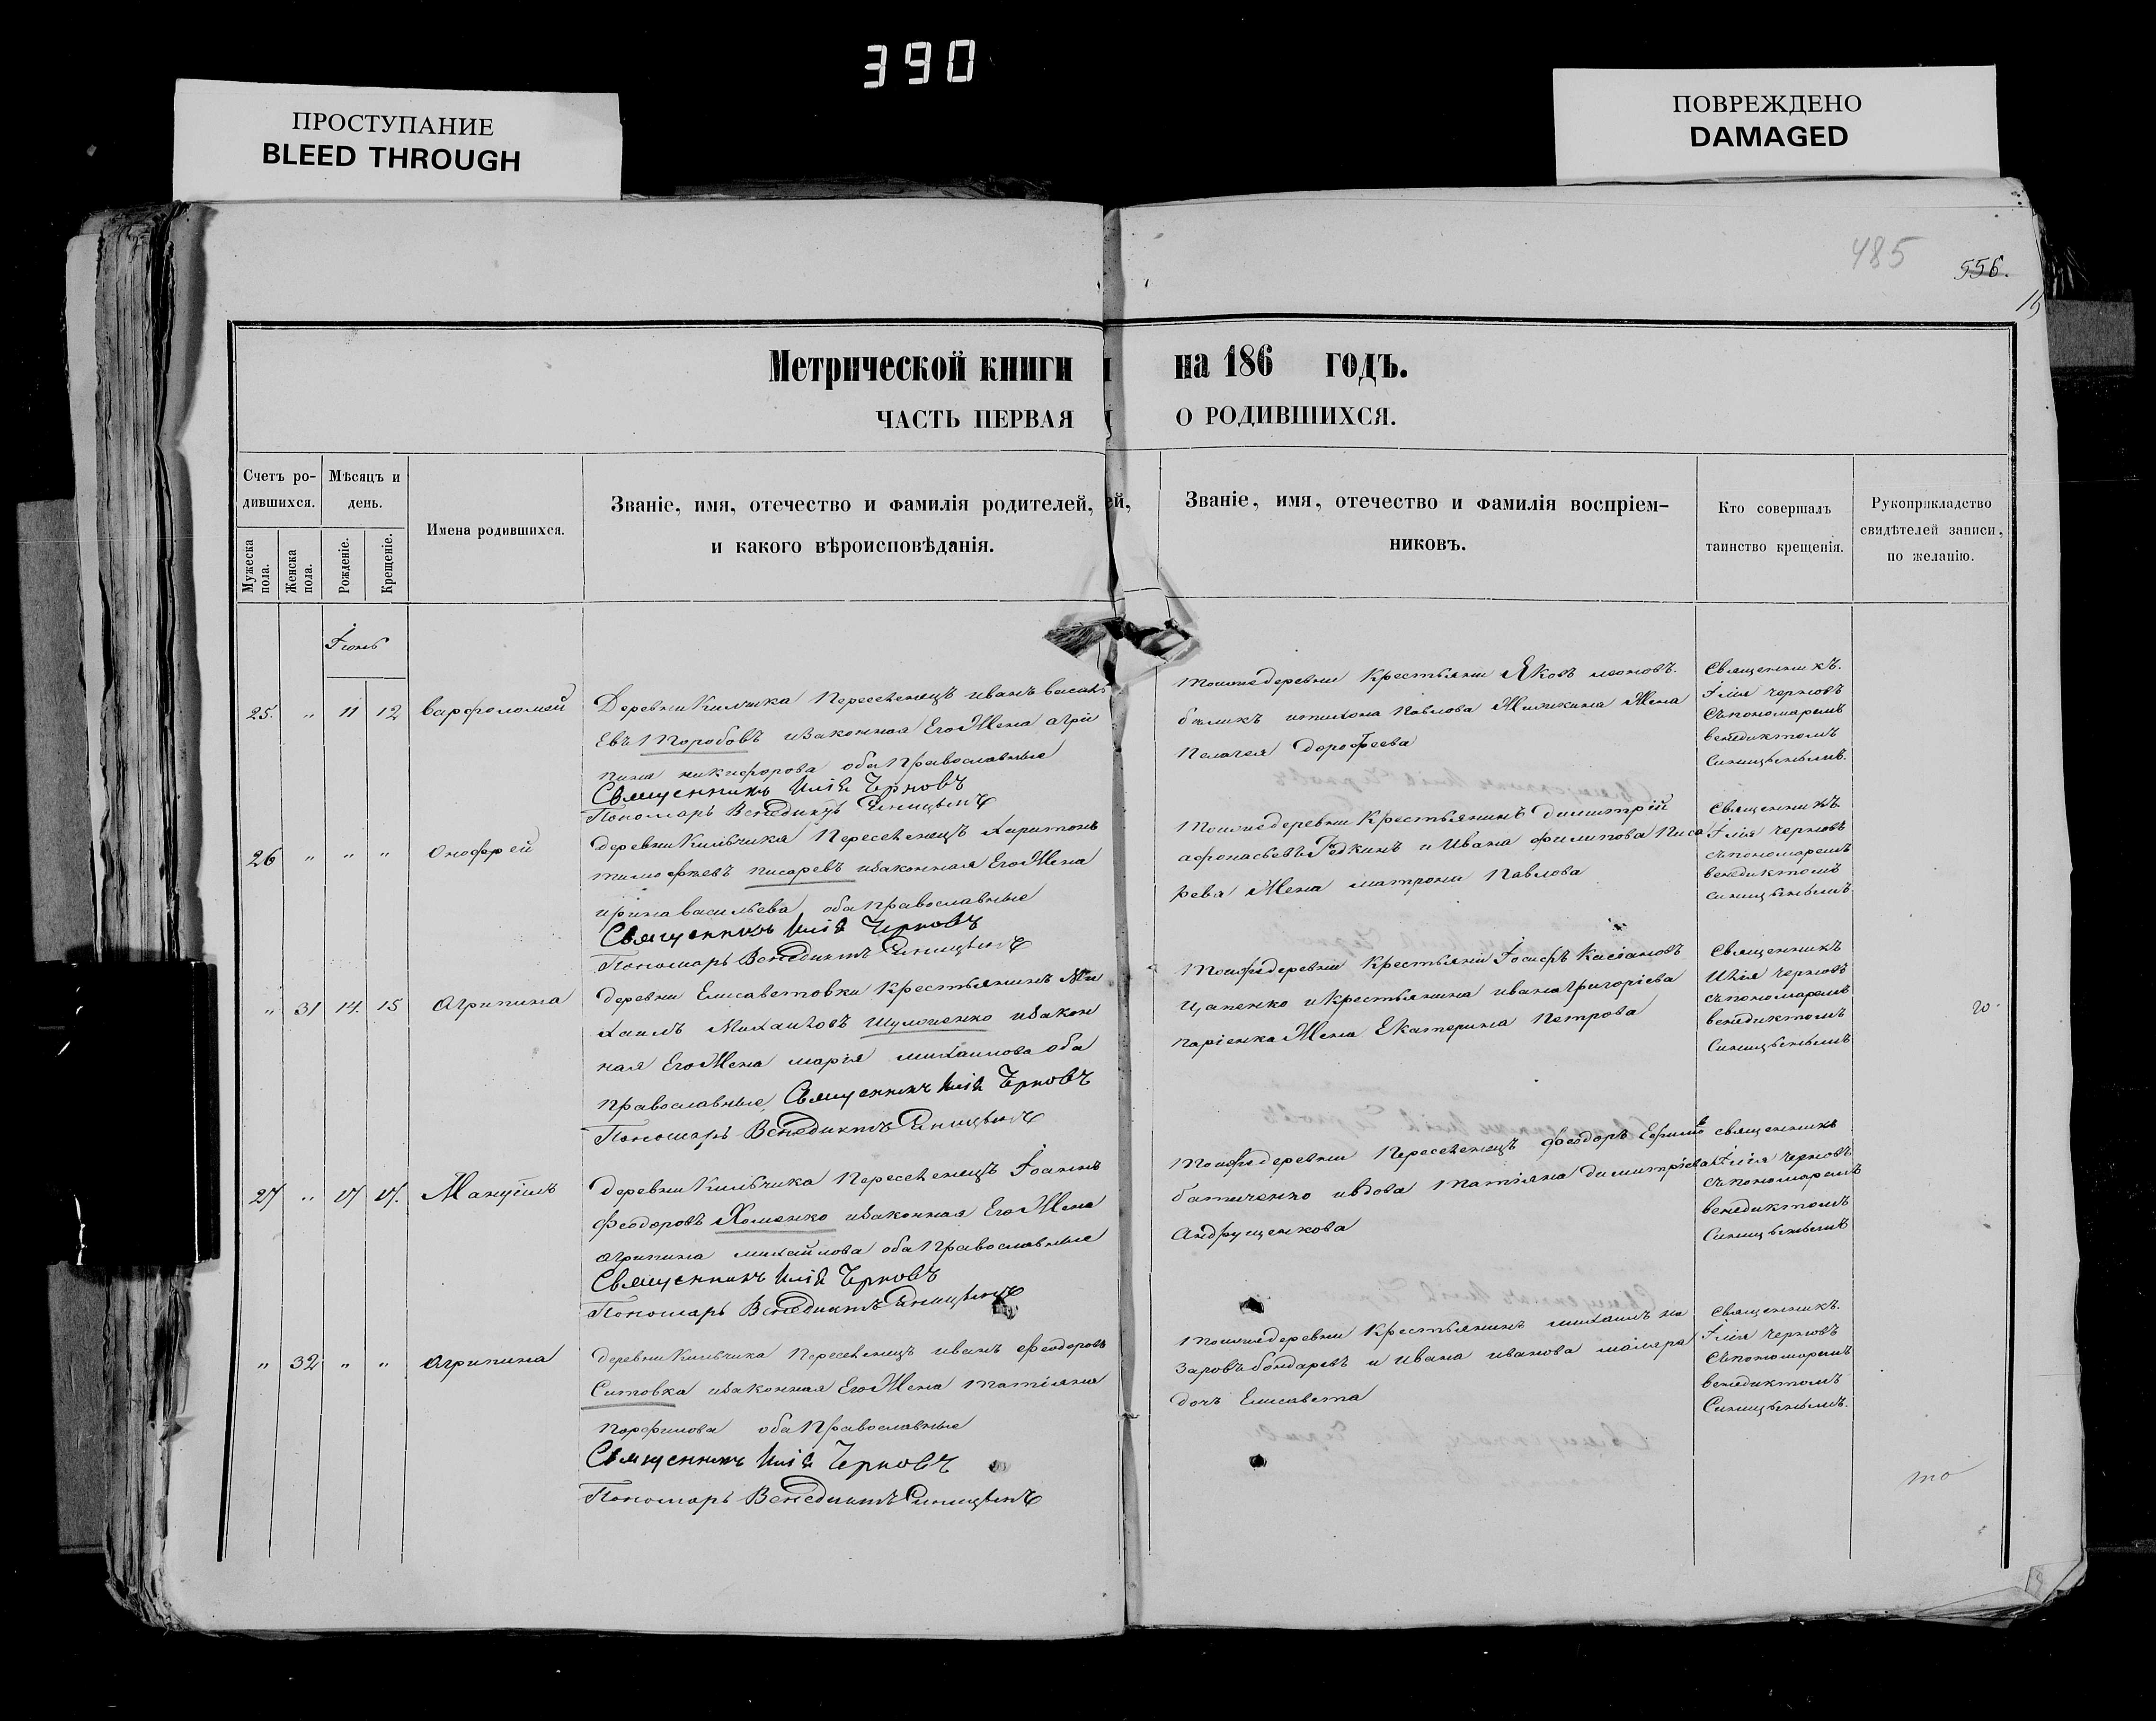 390
ПРОСТУПАНИЕ
BLEED THROUGH
ПОВРЕЖДЕНО
DAMAGED
485
556.
Метрической книги
на 186 годъ.
ЧАСТЬ ПЕРВАЯ
О РОДИВШИХСЯ.
Счетъ ро-
дившихся.
Мужеска
пола.
Женска
пола.
Мѣсяцъ и
день.
Рожденіе.
Крещеніе.
Имена родившихся.
Званіе, имя, отечество и фамилія родителей,
и какого вѣроисповѣданія.
Званіе, имя, отечество и фамилія воспріем-
никовъ.
Кто совершалъ
таинство крещенія.
Рукоприкладство
свидѣтелей записи,
по желанію.
Іюнь
25. " 11 12 Варфоломей
Деревни Кильчика Переселенецъ Иванъ Василь
евъ Торобовъ изаконная Его Жена Агри
пина никифорова оба Православные
Священникъ Илія Черновъ
Пономарь Венедиктъ Синицынъ
Тоижедеревни Крестьяни Яковъ леоновъ
Павлова Жена
Пелагея Дорофеева
Священникъ.
Ілія Черновъ
Съпономаремъ
венедиктомъ
Синицынымъ.
26 " " " Оноферей
деревни Кильчика Переселенецъ Харитонъ
тимофеевъ писаревъ изаконная Его Жена
ирина васильева оба Православные
Священникъ Илія Черновъ
Пономарь Венедиктъ Синицынъ
Тоижедеревни Крестьянинъ Димитрій
афонасьевъ Гедкинъ и Ивана филипова Писа
рева Жена матрона Павлова
Священникъ
Ілія Черновъ
съпономаремъ
венедиктомъ
синицынымъ
" 31 14. 15 Агрипина
деревни Елисаветовки Крестьянинъ Ми
хаилъ Михаиловъ изакон
ная Его Жена марія михаилова оба
Православные, Священникъ Илія Черновъ
Пономарь Венедиктъ Синицынъ
Тоижедеревни Крестьяни Іосифъ Касіановъ
Цапенко и Крестьянина ивана Григоріева
паріенка Жена Екатерина Петрова
Священникъ
Илія Черновъ
съпономаремъ
венедиктомъ
Синицынымъ
27 " 17 17. Мануилъ
деревни Кильчика Переселенецъ Іоаннъ
Феодоровъ Хоменко изаконная Его Жена
агрипина михайлова оба Православные
Священникъ Илія Черновъ
Пономарь Венедиктъ Синицынъ
Тоижедеревни Переселенецъ феодоръ Ефимо
въ
батиченко ивдова Татіяна димитріева
Андрущенкова
священникъ
Ілія Черновъ
съпономаремъ
венедиктомъ
Синицынымъ
" 32 " " Агрипина
деревни Кильчика Переселенецъ иванъ Феодоровъ
Ситовка изаконная Его Жена Татіяна
Порфилова оба Православные
Священникъ Илія Черновъ
Пономарь Венедиктъ Синицынъ
Тоижедеревни Крестьянинъ михаилъ на
заровъ бондаревъ и ивана иванова
дочь Елисавета
Священникъ.
Ілія Черновъ
Съпономаремъ
венедиктомъ
Синицынымъ.